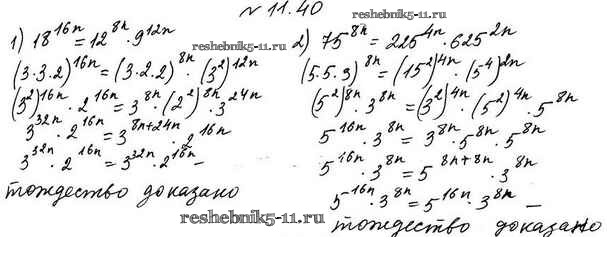 № 11.40
1) 18^{16n} = 12^{8n} · 9^{12n}
(3·3·2)^{16n} = (3·2·2)^{8n} · (3^2)^{12n}
(3^2)^{16n} · 2^{16n} = 3^{8n} · (2^2)^{8n} · 3^{24n}
3^{32n} · 2^{16n} = 3^{8n+24n} · 2^{16n}
3^{32n} · 2^{16n} = 3^{32n} · 2^{16n} –
тождество доказано
2) 75^{8n} = 225^{4n} · 625^{2n}
(5·5·3)^{8n} = (15^2)^{4n} · (5^4)^{2n}
(5^2)^{8n} · 3^{8n} = (3^2)^{4n} · (5^2)^{4n} · 5^{8n}
5^{16n} · 3^{8n} = 3^{8n} · 5^{8n} · 5^{8n}
5^{16n} · 3^{8n} = 5^{8n+8n} · 3^{8n}
5^{16n} · 3^{8n} = 5^{16n} · 3^{8n} –
тождество доказано
reshebnik5-11.ru
reshebnik5-11.ru
reshebnik5-11.ru